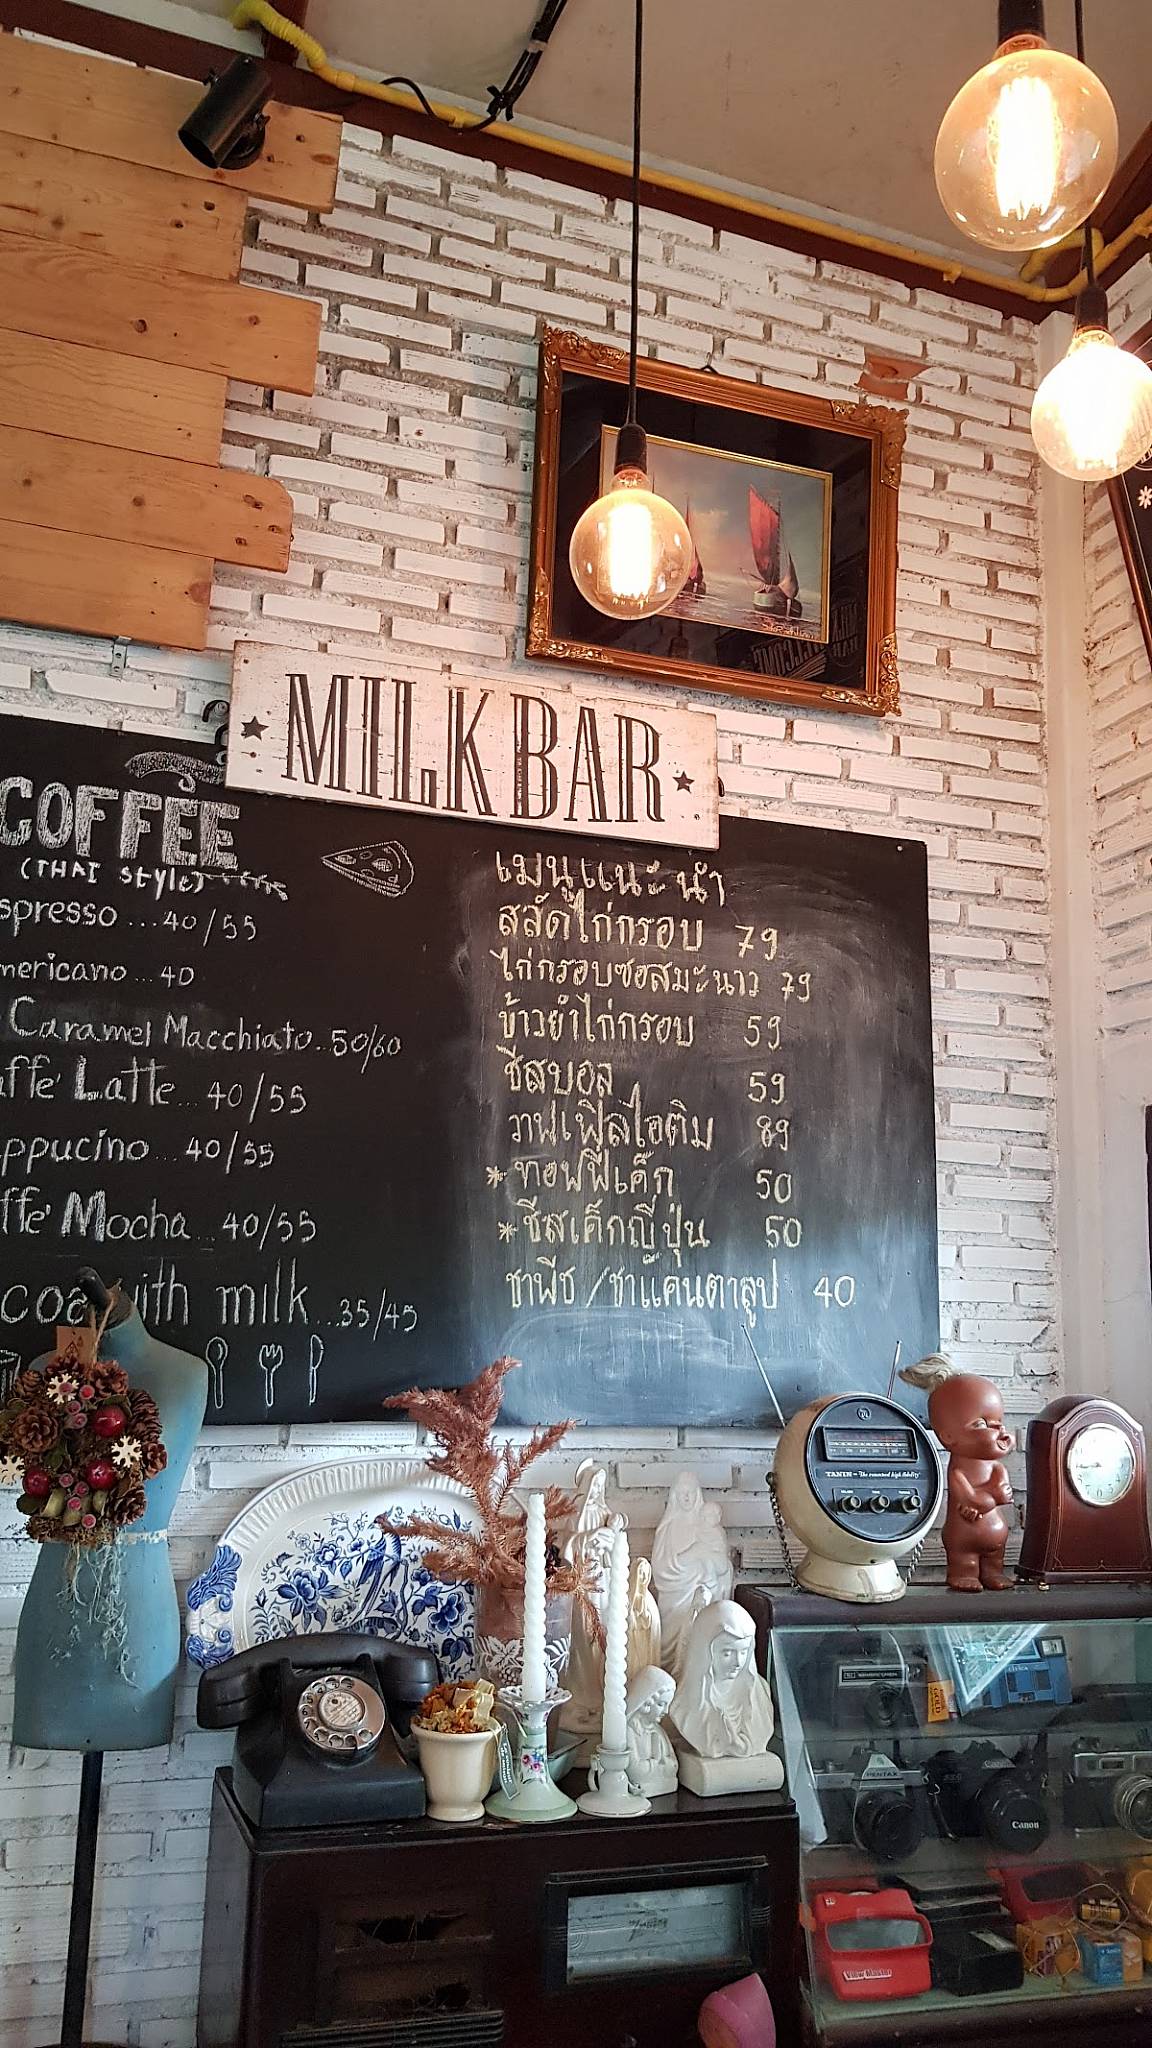 MILK BAR
COFFEE
(THAI Style)
spresso...40/55
mericano...40
Caramel Macchiato..50/60
affe' Latte...40/55
ppucino...40/55
ffe' Mocha...40/55
coa with milk...35/45
เมนูแนะนำ
สลัดไก่กรอบ 79
ไก่กรอบซอสมะนาว 79
ข้าวยำไก่กรอบ 59
ชีสบอล 59
วาฟเฟิลไอติม 89
*ทอฟฟี่เค็ก 50
*ชีสเค็กญี่ปุ่น 50
ชาพีช/ชาแคนตาลูป 40
TANIN
PENTAX
Canon
Canon
View-Master
GOLD